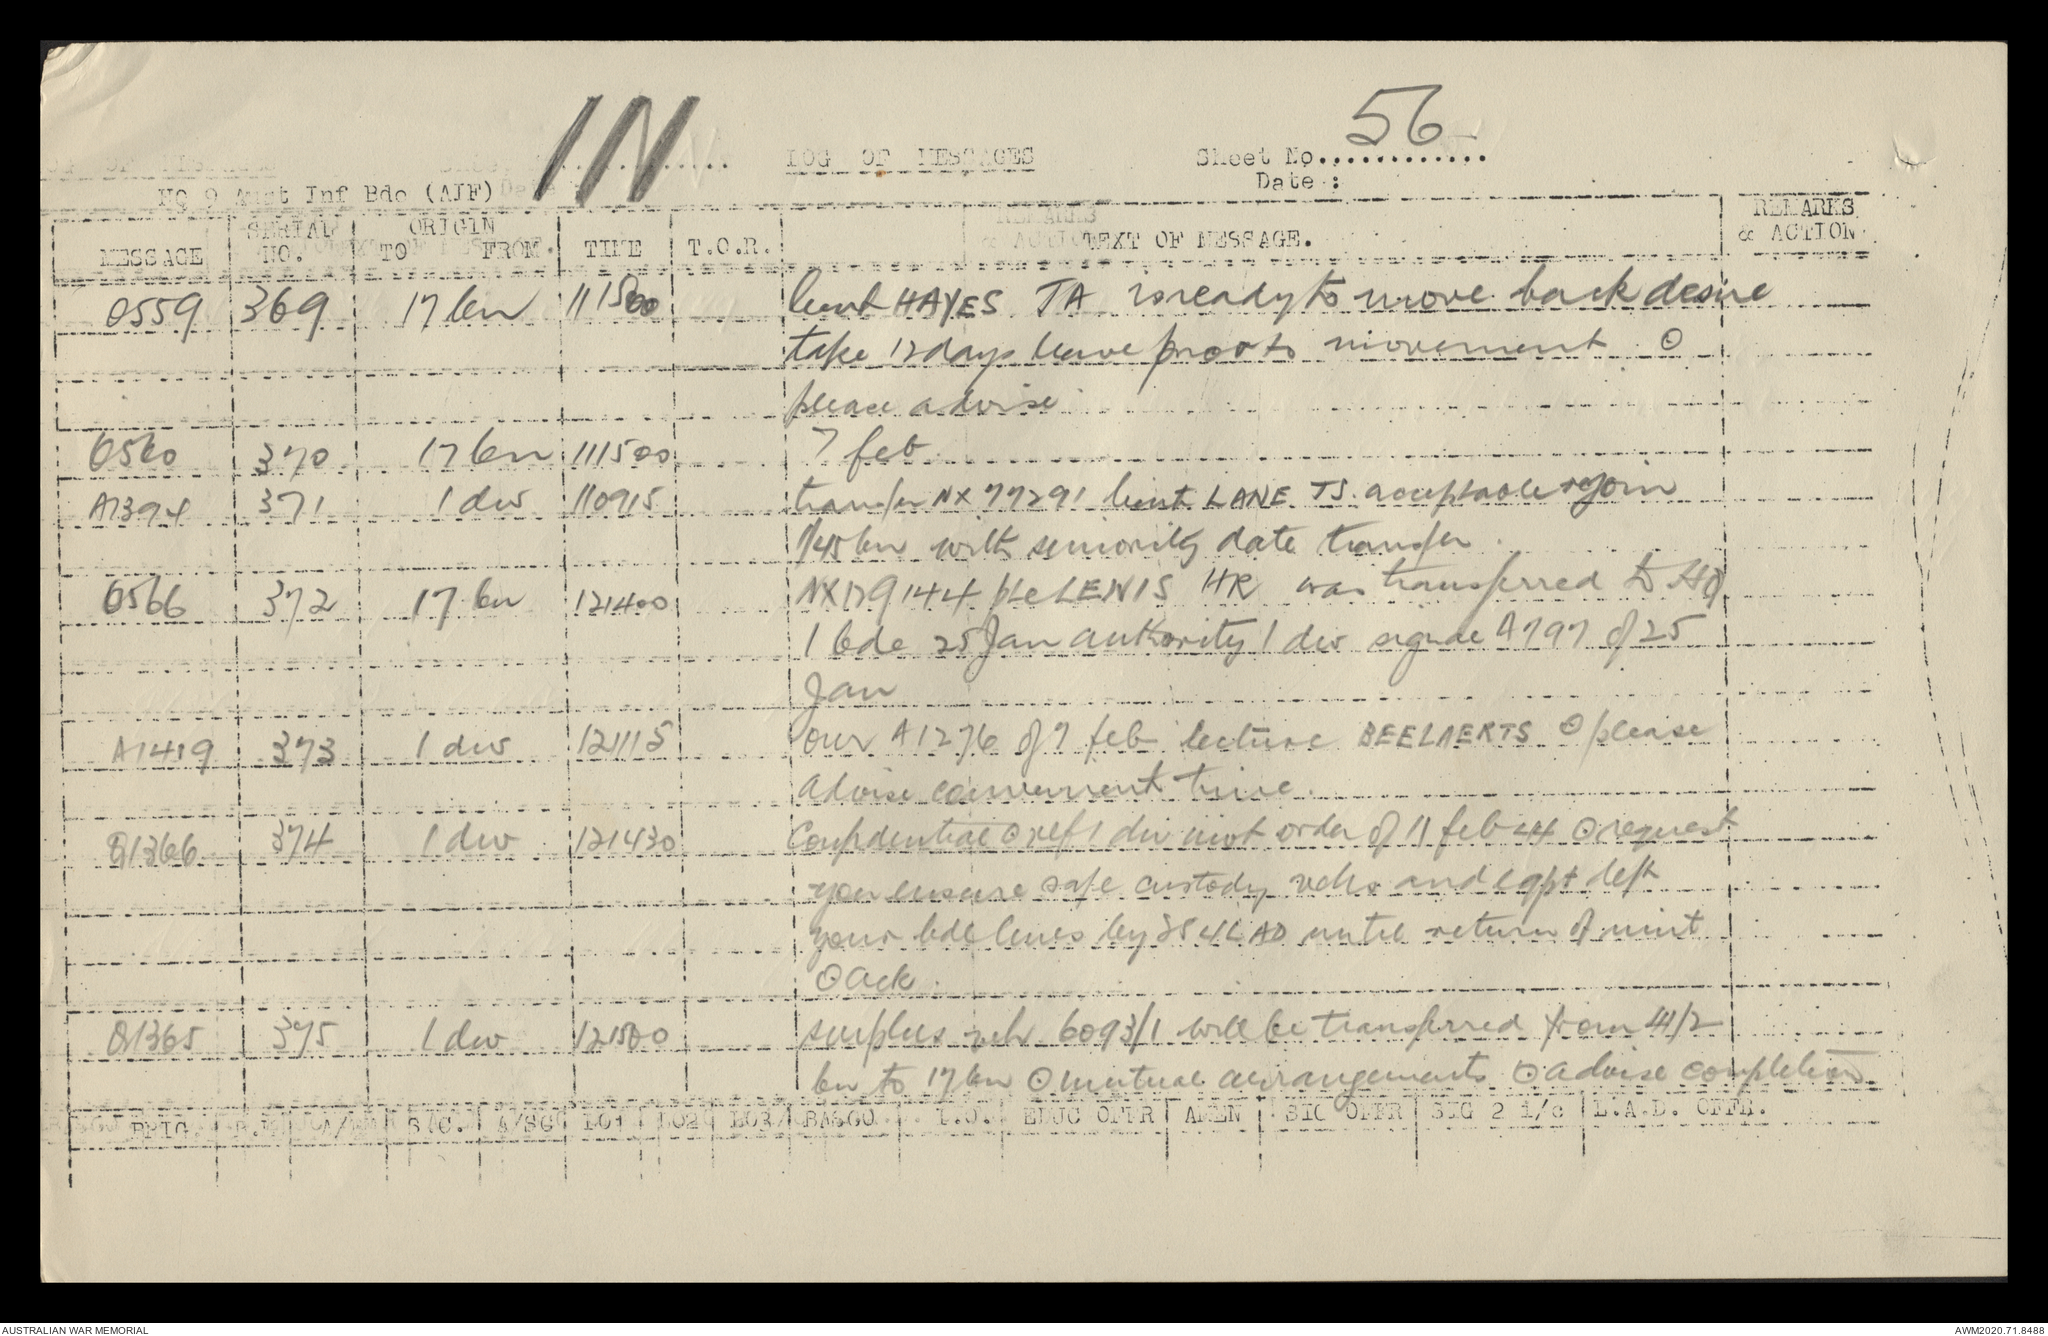 IN
56
LOG OF MESSAGES
Sheet No.............
Date :
HQ 9 Aust Inf Bde (AIF)
MESSAGE SERIAL NO. ORIGIN TO FROM. TIME T.O.R. TEXT OF MESSAGE. REMARKS & ACTION
0559 369 17 bn 111500 lieut HAYES JA is ready to move back desire
take 12 days leave prior to movement ⊙
please advise
0560 370 17 bn 111500 7 feb.
A1394 371 1 div 110915 transfer NX77291 lieut LANE TS acceptable rejoin
1/45 bn with seniority date transfer.
0566 372 17 bn 121400 NX129144 pte LEWIS HR was transferred to HQ
1 bde 25 Jan authority 1 div signal A797 of 25
Jan
A1419 373 1 div 121115 our A1276 of 7 feb lecture BEELAERTS ⊙ please
advise convenient time.
Q1366 374 1 div 121430 Confidential ⊙ ref 1 div mov order of 11 feb 44 ⊙ request
you ensure safe custody vehs and eqpt left
your bde lines by LAD until return of unit
⊙ ack.
Q1365 375 1 div 121500 surplus veh 6093/1 will be transferred from 41/2
bn to 17 bn ⊙ mutual arrangements ⊙ advise completion
BRIG. B.M. S/C. LO1 LO2 LO3 BASCO I.O. EDUC OFFR AMEN SIG OFFR SIG 2 i/c L.A.D. OFFR.
AUSTRALIAN WAR MEMORIAL
AWM2020.71.8488